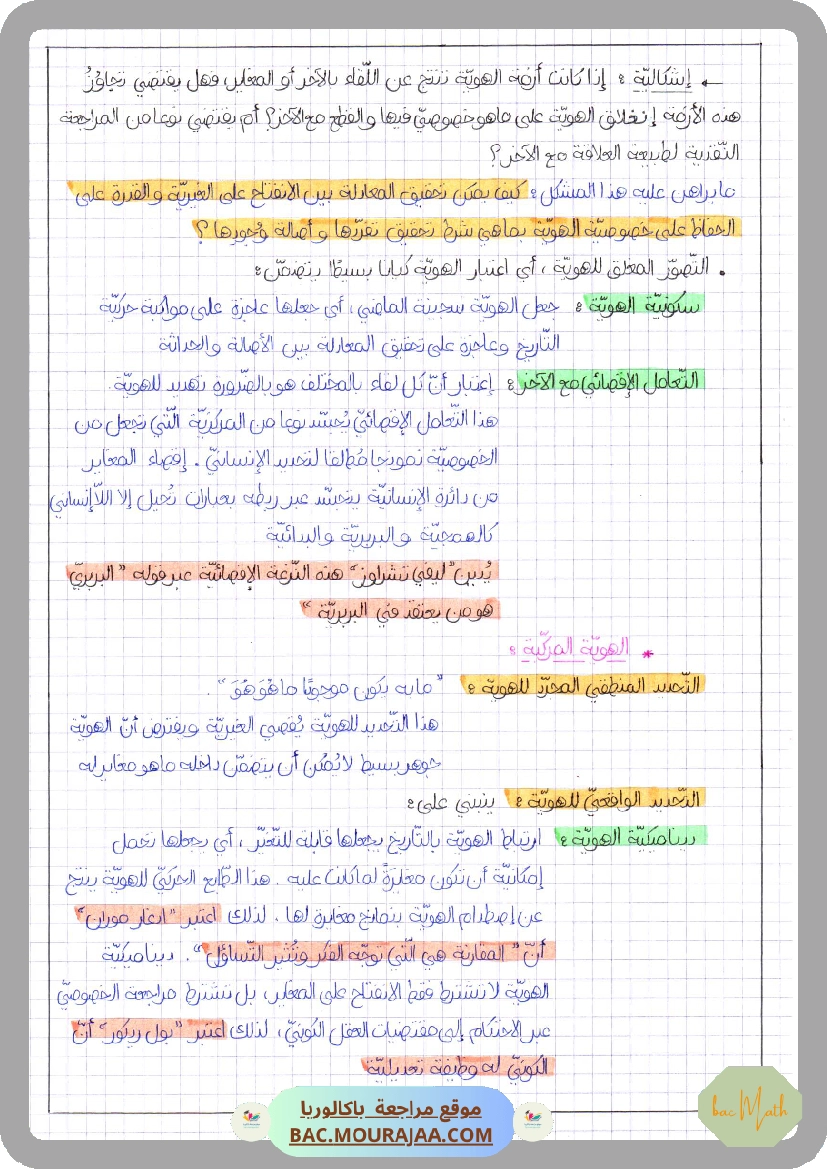 ← إشكاليّة : إذا كانت أزمة الهويّة تنتج عن اللّقاء بالآخر أو المغاير، فهل يقتضي تجاوزُ
هذه الأزمة إنغلاق الهويّة على ماهو خصوصيّ فيها والقطع مع الآخر؟ أم يقتضي نوعا من المراجعة
النّقدية لطبيعة العلاقة مع الآخر؟
ما يراهن عليه هذا المشكل : كيف يمكن تحقيق المعادلة بين الانفتاح على الغيريّة والقدرة على
الحفاظ على خصوصيّة الهويّة بماهي شرط تحقيق تفرّدها وأصالة وُجودها؟
• التّصوّر المغلق للهويّة ، أي اعتبار الهويّة كيانا بسيطًا يتضمّن :
سكونيّة الهويّة : جعل الهويّة سجينة الماضي ، أي جعلها عاجزة على مواكبة حركيّة
التّاريخ وعاجزة على تحقيق المعادلة بين الأصالة والحداثة
التّعامل الإقصائي مع الآخر : إعتبار أنّ كل لقاء بالمختلف هو بالضّرورة تهديد للهويّة.
هذا التّعامل الإقصائيّ يُجسّد نوعا من المركزيّة الّتي تجعل من
الخصوصيّة نموذجا مُطلقا لتحديد الإنسانيّ . إقصاء المغاير
من دائرة الإنسانيّة يتجسّد عبر ربطه بعبارات تُحيل إلا اللّاإنساني
كالهمجيّة والبربريّة والبدائيّة
يُدين "ليفي تشراوز" هذه النّزعة الإقصائيّة عبر قوله "البربريّ
هو من يعتقد في البربريّة"
* الهويّة المركّبة :
التّحديد المنطقي المجرّد للهويّة : "ما به يكون موجودًا ما هُوَ هُوَ".
هذا التّحديد للهويّة يُقصي الغيريّة ويفترض أنّ الهويّة
جوهر بسيط لا يُمكن أن يتضمّن داخله ماهو مغاير له
التّحديد الواقعيّ للهويّة : ينبني على :
ديناميكيّة الهويّة : ارتباط الهويّة بالتّاريخ يجعلها قابلة للتّغيّر ، أي يجعلها تحمل
إمكانيّة أن تكون مغايرةً لما كانت عليه . هذا الطّابع الحركيّ للهويّة ينتج
عن إصطدام الهويّة بنماذج مغايرة لها . لذلك اعتبر "ادغار موران"
أنّ "المقارنة هي الّتي توجّه الفكر وتُثير التّساؤل". ديناميكيّة
الهويّة لا تشترط فقط الانفتاح على المغاير، بل تشترط مراجعة الخصوصيّ
عبر الاحتكام إلى مقتضيات العقل الكونيّ، لذلك اعتبر "بول ريكور" أنّ
الكونيّ له وظيفة تعديليّة
موقع مراجعة باكالوريا
BAC.MOURAJAA.COM
bac Math